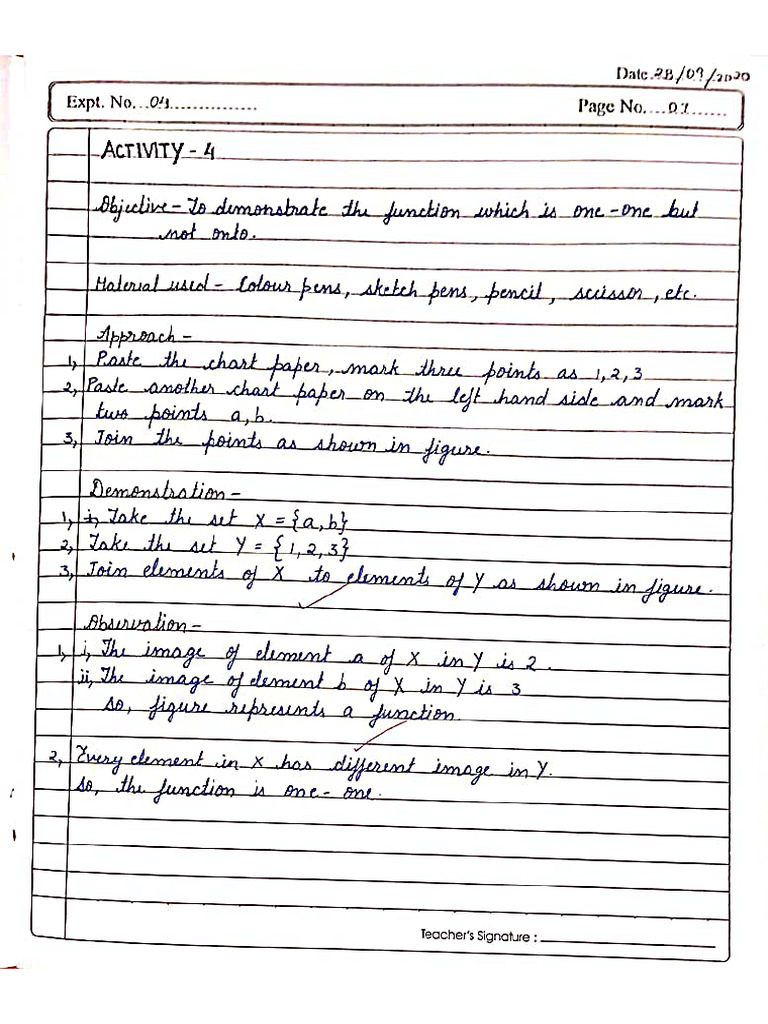 Date 28/09/2020
Expt. No....04...............
Page No....07.......
ACTIVITY - 4
Objective - To demonstrate the function which is one-one but
not onto.
Material used - Colour pens, sketch pens, pencil, scissor, etc.
Approach -
1, Paste the chart paper, mark three points as 1, 2, 3
2, Paste another chart paper on the left hand side and mark
two points a, b.
3, Join the points as shown in figure.
Demonstration -
1, Take the set X = {a, b}
2, Take the set Y = {1, 2, 3}
3, Join elements of X to elements of Y as shown in figure.
Observation -
1, i, The image of element a of X in Y is 2.
ii, The image of element b of X in Y is 3
so, figure represents a function.
2, Every element in X has different image in Y.
So, the function is one-one.
Teacher's Signature :